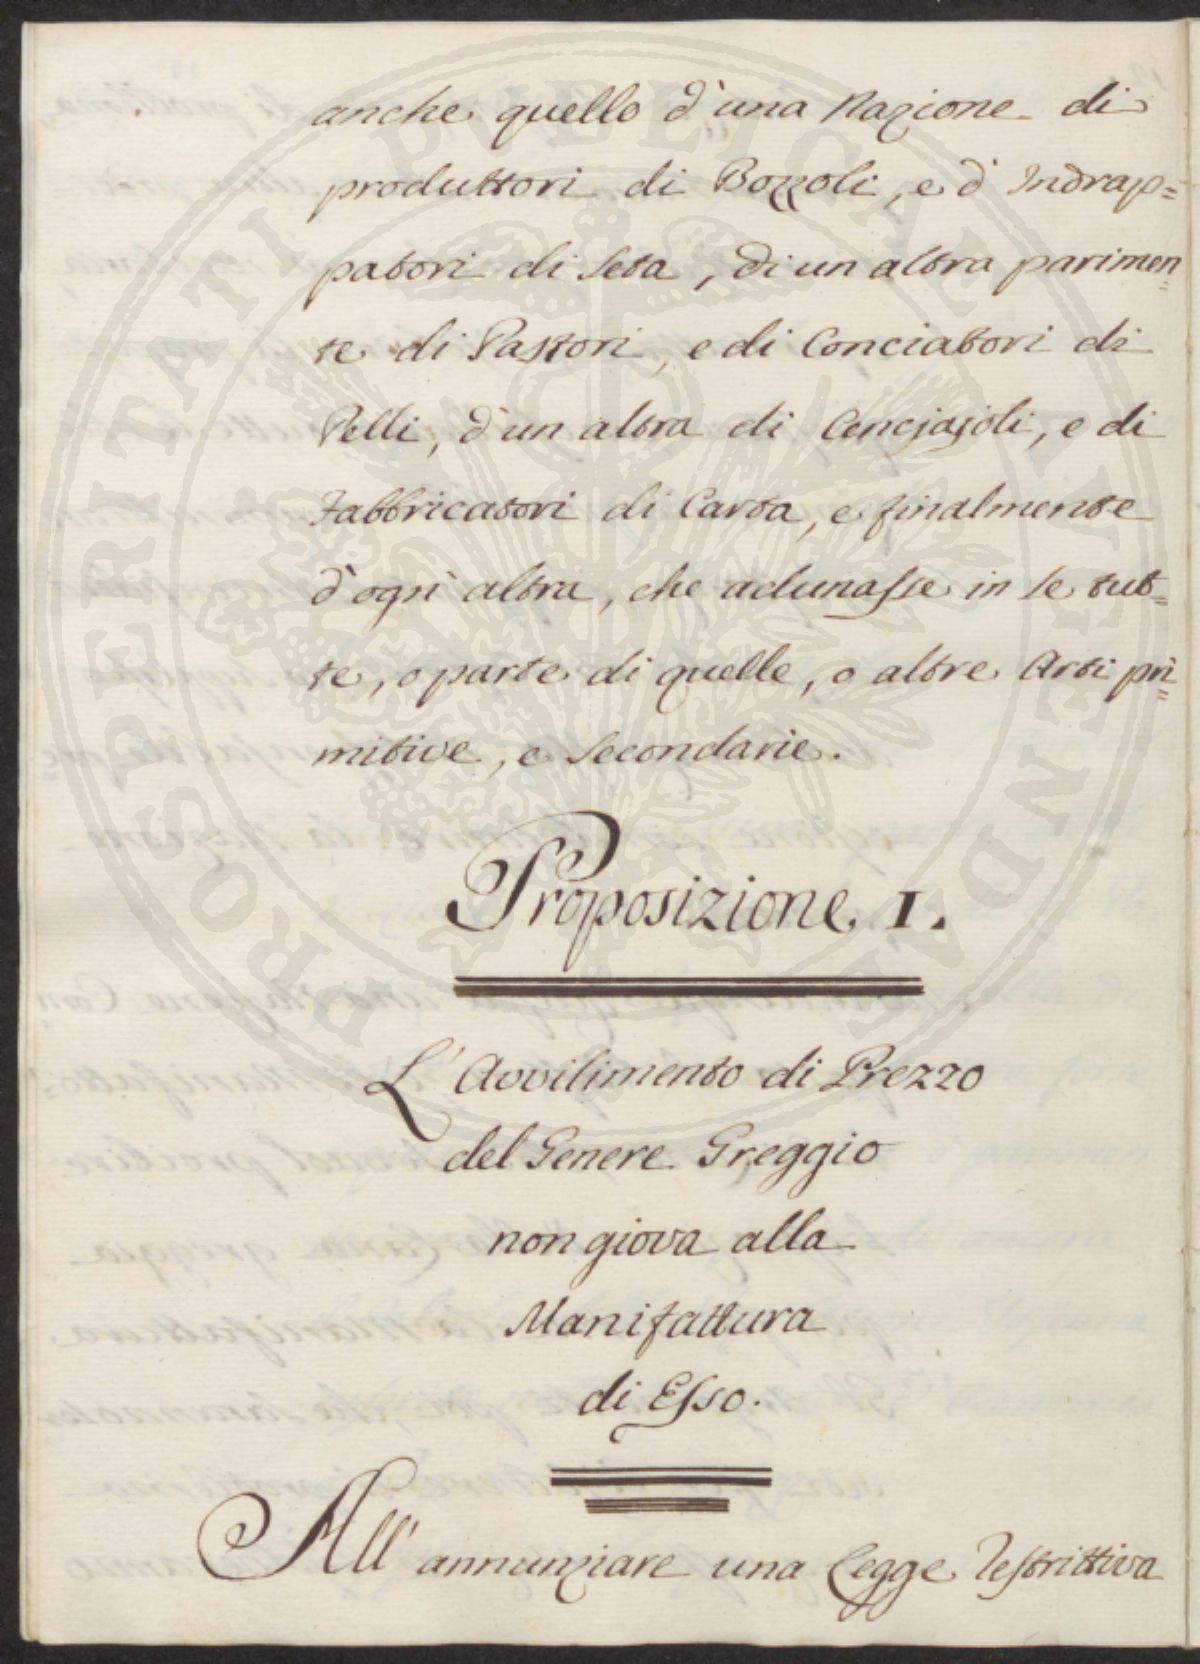 anche quello d'una Nazione di
produttori di Bozzoli, e d'Indrap=
patori di Seta, di un altra parimen=
te di Pastori, e di Conciatori di
Pelli, d'un altra di Cencjajoli, e di
Fabbricatori di Carta, e finalmente
d'ogni altra, che adunasse in se tut=
te, o parte di quelle, o altre Arti pri=
mitive, e Secondarie.
Proposizione I.
L'Avvilimento di Prezzo
del Genere Greggio
non giova alla
Manifattura
di Esso.
All' annunziare una Legge Restrittiva
PROSPERITATI PUBLICAE AUGENDAE